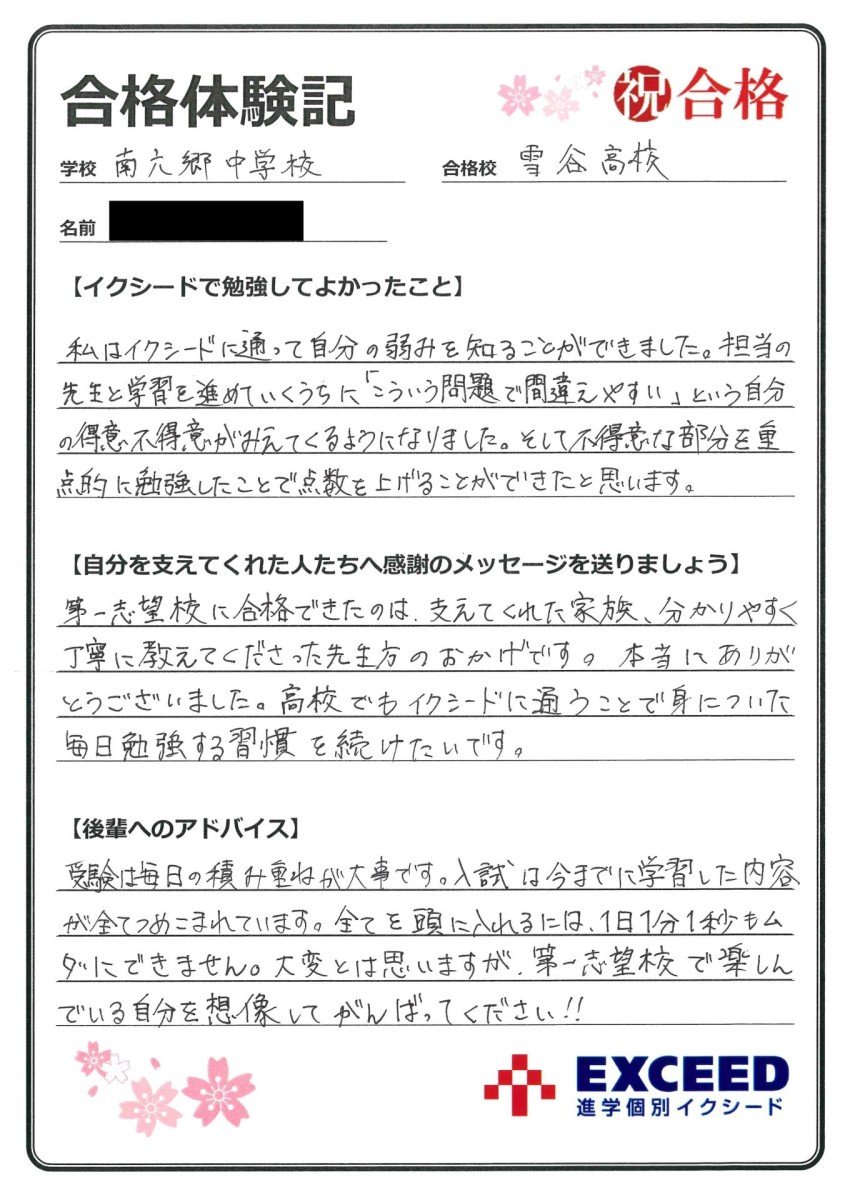 合格体験記
祝 合格
学校 南六郷中学校
合格校 雪谷高校
名前
【イクシードで勉強してよかったこと】
私はイクシードに通って自分の弱みを知ることができました。担当の
先生と学習を進めていくうちに「こういう問題で間違えやすい」という自分
の得意不得意がみえてくるようになりました。そして不得意な部分を重
点的に勉強したことで点数を上げることができたと思います。
【自分を支えてくれた人たちへ感謝のメッセージを送りましょう】
第一志望校に合格できたのは、支えてくれた家族、分かりやすく
丁寧に教えてくださった先生方のおかげです。本当にありが
とうございました。高校でもイクシードに通うことで身についた
毎日勉強する習慣を続けたいです。
【後輩へのアドバイス】
受験は毎日の積み重ねが大事です。入試は今までに学習した内容
が全てつめこまれています。全てを頭に入れるには、1日1分1秒もム
ダにできません。大変とは思いますが、第一志望校で楽しん
でいる自分を想像してがんばってください!!
EXCEED
進学個別イクシード